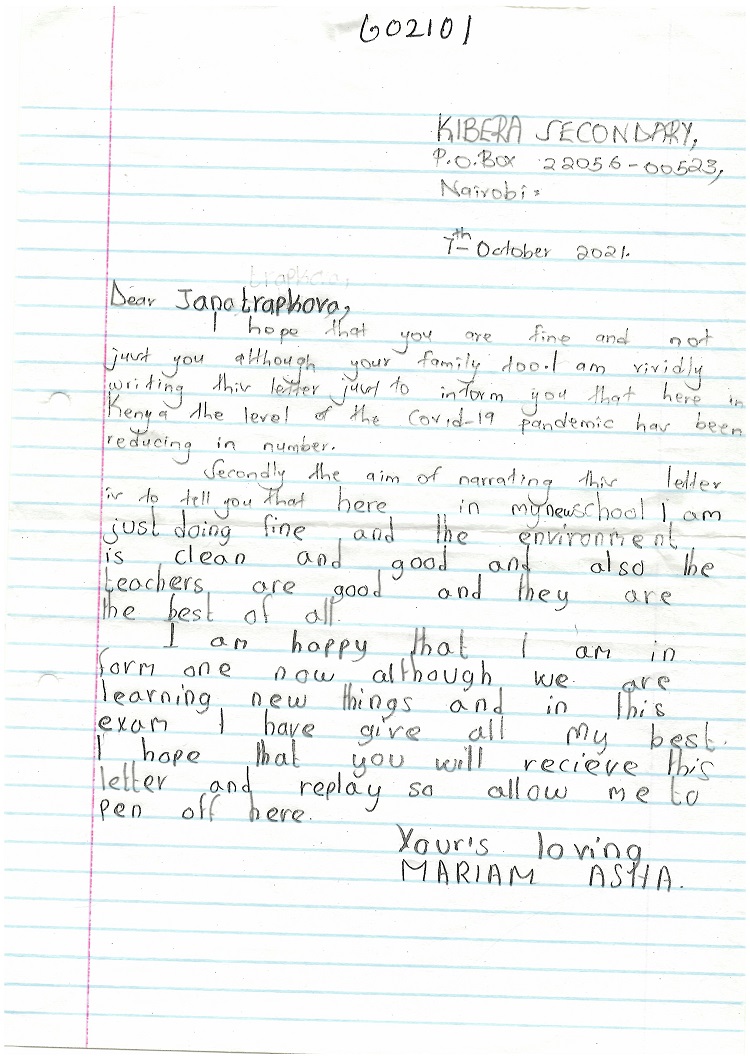 602101
KIBERA SECONDARY,
P.O.Box 22056-00523,
Nairobi.
7th October 2021.
Dear Jana trapkova,
I hope that you are fine and not
just you although your family too. I am vividly
writing this letter just to inform you that here in
Kenya the level of the Covid-19 pandemic has been
reducing in number.
Secondly the aim of narrating this letter
is to tell you that here in my new school I am
just doing fine and the environment
is clean and good and also the
teachers are good and they are
the best of all.
I am happy that I am in
form one now although we are
learning new things and in this
exam I have give all my best.
I hope that you will recieve this
letter and replay so allow me to
pen off here.
Your's loving
MARIAM ASHA.